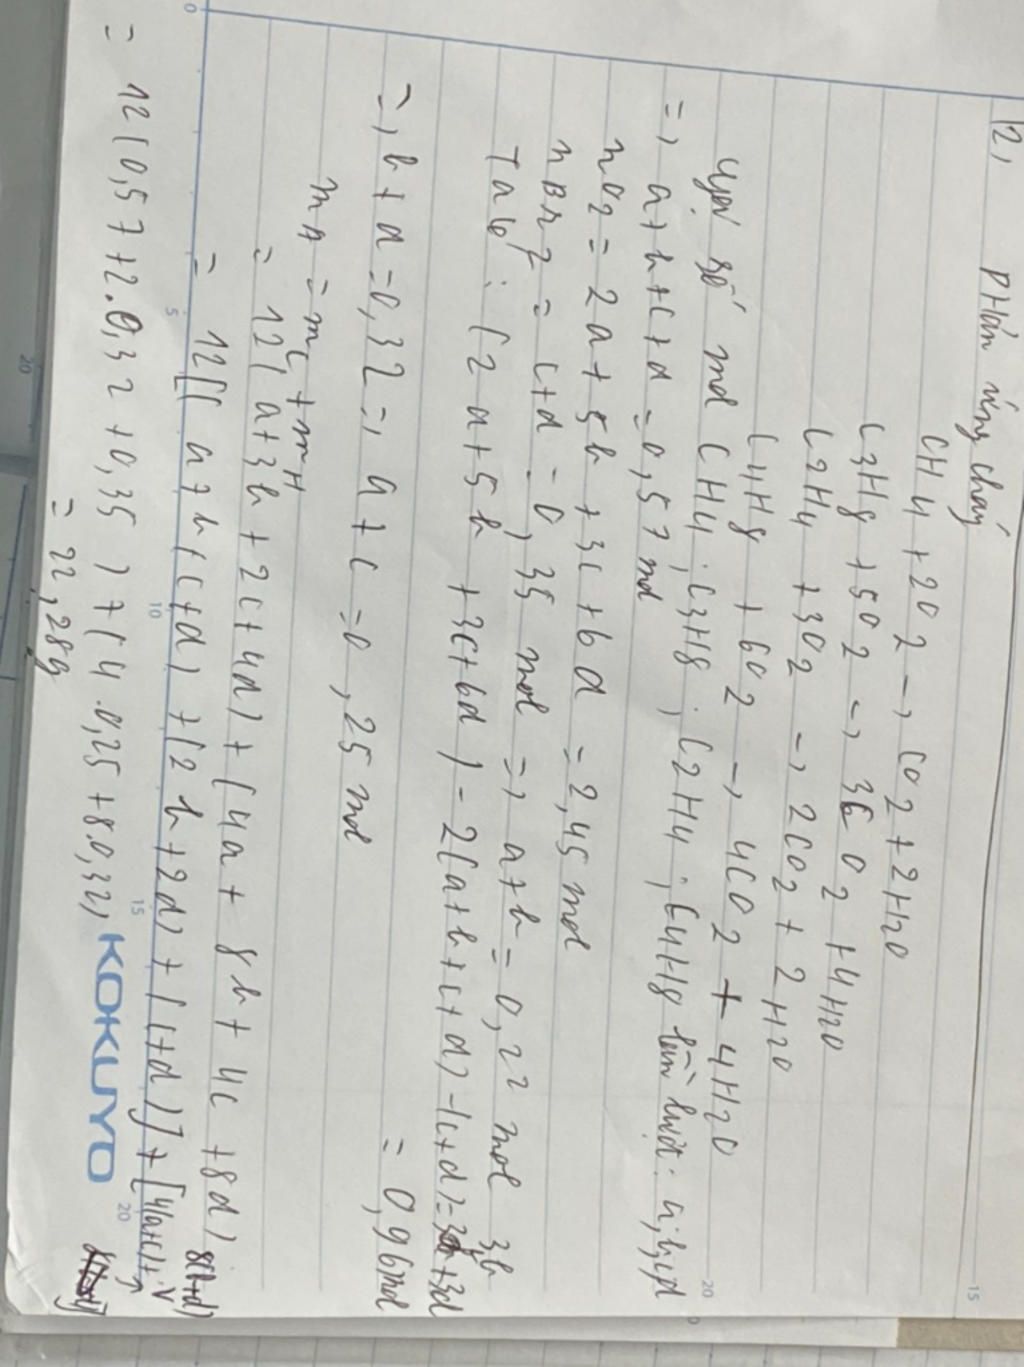 12,
Phản ứng cháy
CH4 + 2O2 -> CO2 + 2H2O
C3H8 + 5O2 -> 3CO2 + 4H2O
C2H4 + 3O2 -> 2CO2 + 2H2O
C4H8 + 6O2 -> 4CO2 + 4H2O
Gọi số mol CH4; C3H8; C2H4; C4H8 lần lượt: a;b;c;d
=> a+b+c+d = 0,57 mol
nO2 = 2a + 5b + 3c + 6d = 2,45 mol
nBr2 = c+d = 0,35 mol => a+b = 0,22 mol
Ta có: (2a+5b+3c+6d) - 2(a+b+c+d) - (c+d) = 3b+3d
= 0,96 mol
=> b+d = 0,32 => a+c = 0,25 mol
mA = mC + mH
= 12(a+3b+2c+4d) + (4a+8b+4c+8d)
= 12[(a+b+c+d) + (2b+2d) + (c+d)] + [4(a+c) + 8(b+d)]
= 12(0,57+2.0,32+0,35) + (4.0,25+8.0,32)
= 22,28g
KOKUYO
0
5
10
15
20
15
20
20